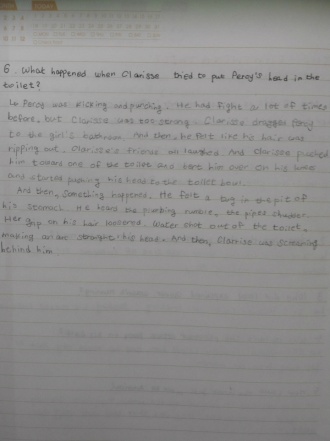 6. What happened when Clarisse tried to put Percy's head in the
toilet?
↳ Percy was kicking and punching. He had fight a lot of times
before, but Clarisse was too strong. Clarisse dragged Percy
to the girl's bathroom. And then, he felt like his hair was
ripping out. Clarisse's friends all laughed. And Clarisse pushed
him toward one of the toilet and bent him over on his knees
and started pushing his head to the toilet bowl.
And then, something happened. He felt a tug in the pit of
his stomach. He heard the plumbing rumble, the pipes shudder.
Her grip on his hair loosened. Water shot out of the toilet,
making an arc straight his head. And then, Clarisse was screaming
behind him.